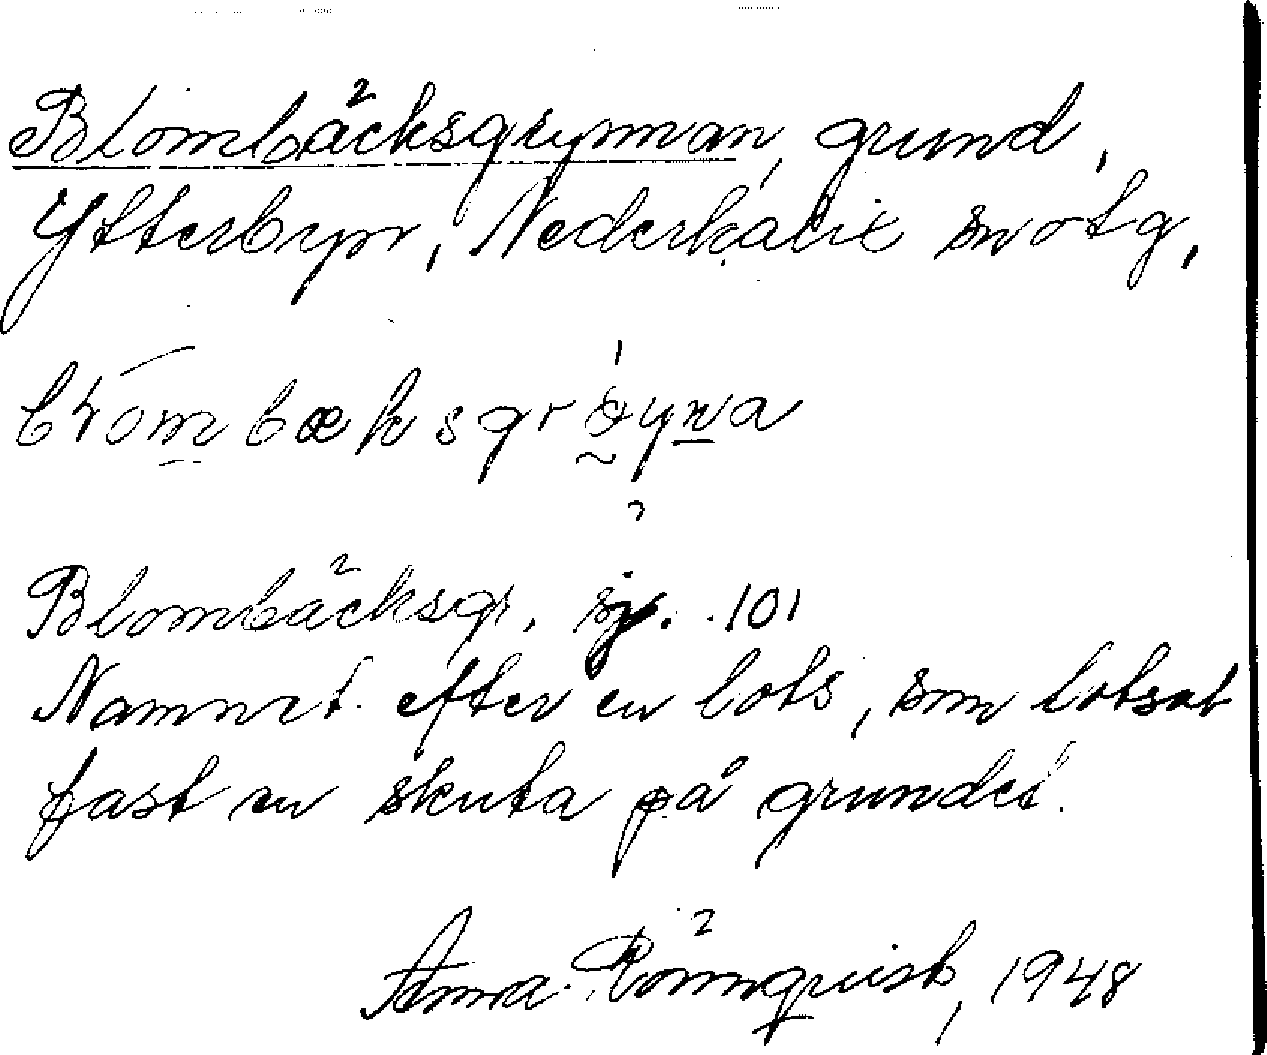 Blombäcksgrynnan, grund,
Ytterbyn, Nederkalix sn otg,
Blombäcksgr. sj. 101
Namnet efter en lots, som lotsat
fast en skuta på grundet.
Anna Rönnqvist, 1948